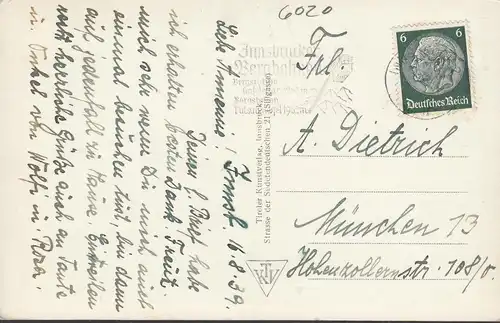 6020
Innsbrucker
Bergbahnen
6 6
Deutsches Reich
Frl.
A. Dietrich
München 13
Hohenzollernstr. 108/0.
Tiroler Kunstverlag, Innsbruck
Strasse der Sudetendeutschen 21 (Sillgasse)
KTV
Imst, 16.8.39.
Liebe Annemie!
Deinen l. Brief habe
ich erhalten besten Dank. Freut
mich sehr wenn Du mich auch
einmal besuchen tust, bin dann
auf jedenfall zu Hause.
recht herzliche Grüße auch an Tante
u. Onkel von Wolf u. Rosa.